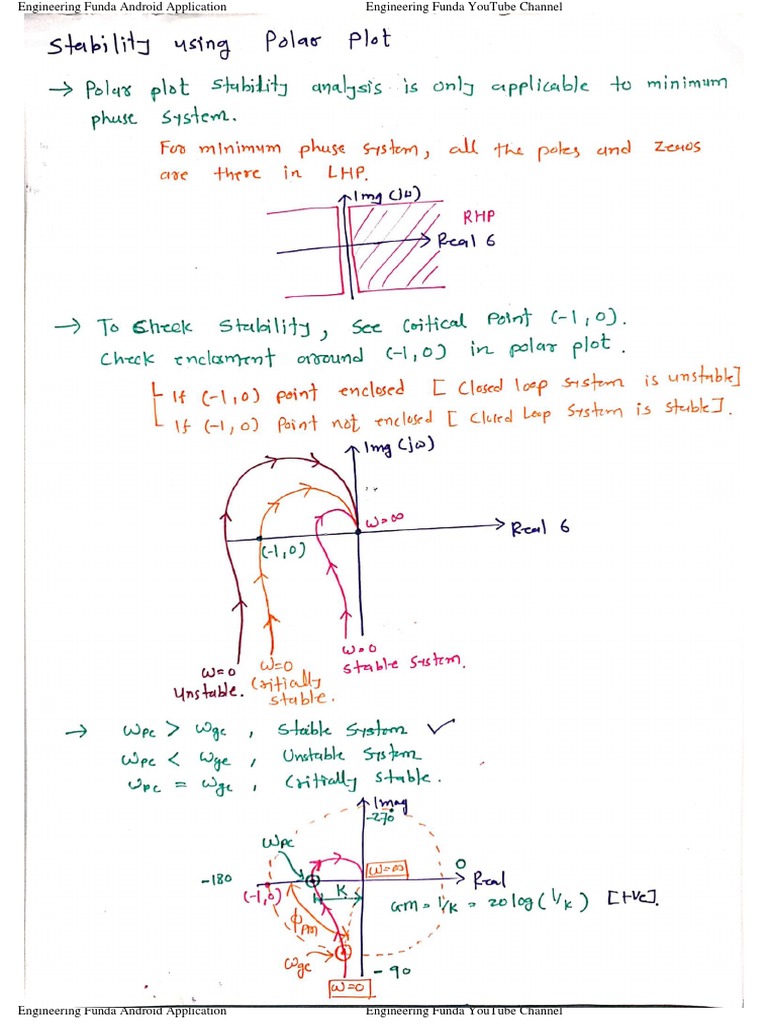 Engineering Funda Android Application Engineering Funda YouTube Channel
Stability using Polar Plot
→ Polar plot stability analysis is only applicable to minimum
phase system.
For minimum phase system, all the poles and zeros
are there in LHP.
Img (jω)
RHP
Real 6
→ To Check Stability, see critical Point (-1,0).
Check enclament around (-1,0) in polar plot.
If (-1,0) point enclosed [ Closed loop system is unstable]
If (-1,0) Point not enclosed [ Closed Loop System is stable].
Img (jω)
ω=∞
Real 6
(-1,0)
ω=0
ω=0
ω=0
Stable System.
Unstable.
Critially
stable.
→ ωpc > ωgc , Stable System ✓
ωpc < ωgc , Unstable System
ωpc = ωgc , Critially stable.
Imag
-270
ωpc
ω=∞
0
-180
Real
(-1,0)
K
GM = 1/K = 20 log (1/K) [+ve].
ϕPM
ωgc
-90
ω=0
Engineering Funda Android Application Engineering Funda YouTube Channel